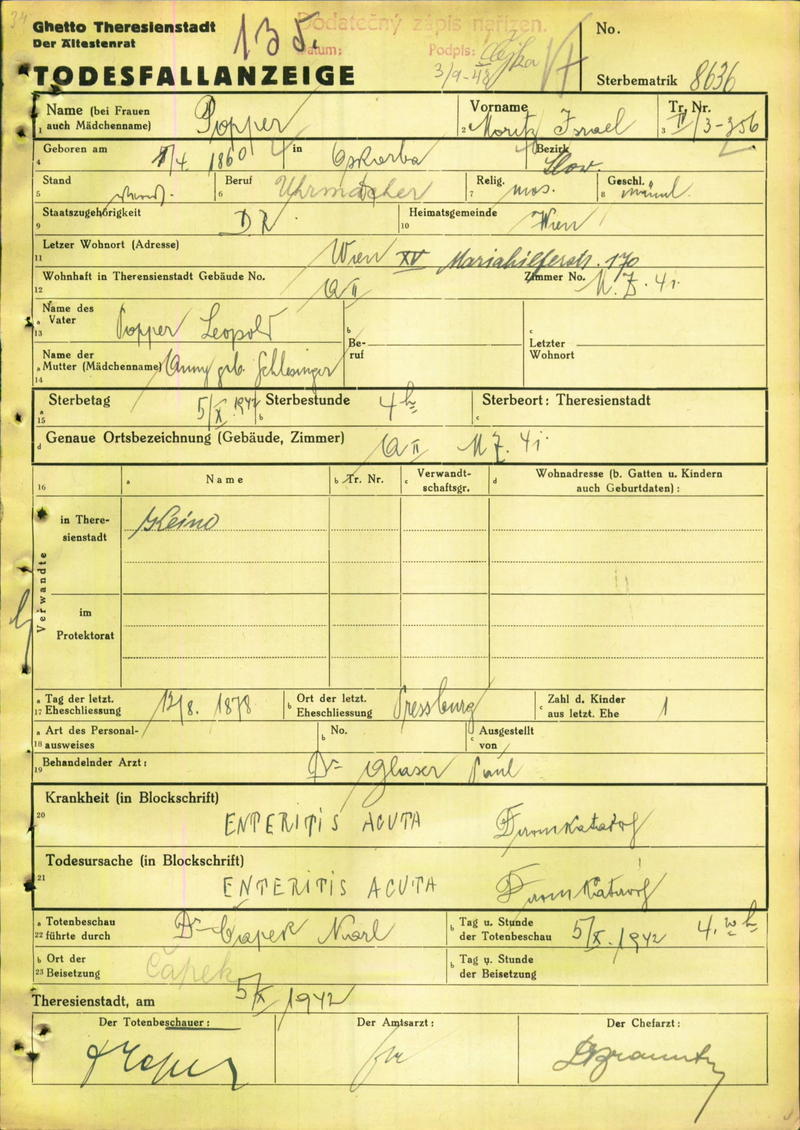 Ghetto Theresienstadt
Der Ältestenrat
135.
Dodatečný zápis nařízen.
Datum: Podpis:
3/9-48
No.
TODESFALLANZEIGE
Sterbematrik 8636
Name (bei Frauen auch Mädchenname) Popper
Vorname Moritz Israel
Tr. Nr. IV/3-356
1 2 3
Geboren am /4. 1860 in
Bezirk Slov.
4
Stand
Beruf Uhrmacher
Relig. mos.
Geschl. männl.
5 6 7 8
Staatszugehörigkeit DR.
Heimatsgemeinde Wien
9 10
Letzer Wohnort (Adresse) Wien XV Mariahilferstr. 170
11
Wohnhaft in Theresienstadt Gebäude No. Q II
Zimmer No. M.Z. 41.
12
Name des Vater Popper Leopold
a 13
b Beruf
c Letzter Wohnort
Name der Mutter (Mädchenname) Anny geb. Schlesinger
a 14
a 15 Sterbetag 5/X 1942
b Sterbestunde 4 h
c Sterbeort: Theresienstadt
d Genaue Ortsbezeichnung (Gebäude, Zimmer) Q II M Z. 41.
16 a Name
b Tr. Nr.
c Verwandtschaftsgr.
d Wohnadresse (b. Gatten u. Kindern auch Geburtdaten):
Verwandte
in Theresienstadt Keine
im Protektorat
a 17 Tag der letzt. Eheschliessung 12/8. 1878
b Ort der letzt. Eheschliessung Pressburg
c Zahl d. Kinder aus letzt. Ehe 1
a 18 Art des Personalausweises
b No.
c Ausgestellt von
19 Behandelnder Arzt: Dr Glaser Paul
Krankheit (in Blockschrift)
20 ENTERITIS ACUTA Darmkatarrh
Todesursache (in Blockschrift)
21 ENTERITIS ACUTA Darmkatarrh
a 22 Totenbeschau führte durch Dr Čapek Karl
b Tag u. Stunde der Totenbeschau 5/X. 1942 4. h
b 23 Ort der Beisetzung Čapek
b Tag u. Stunde der Beisetzung
Theresienstadt, am 5/X 1942
Der Totenbeschauer:
Der Amtsarzt:
Der Chefarzt: